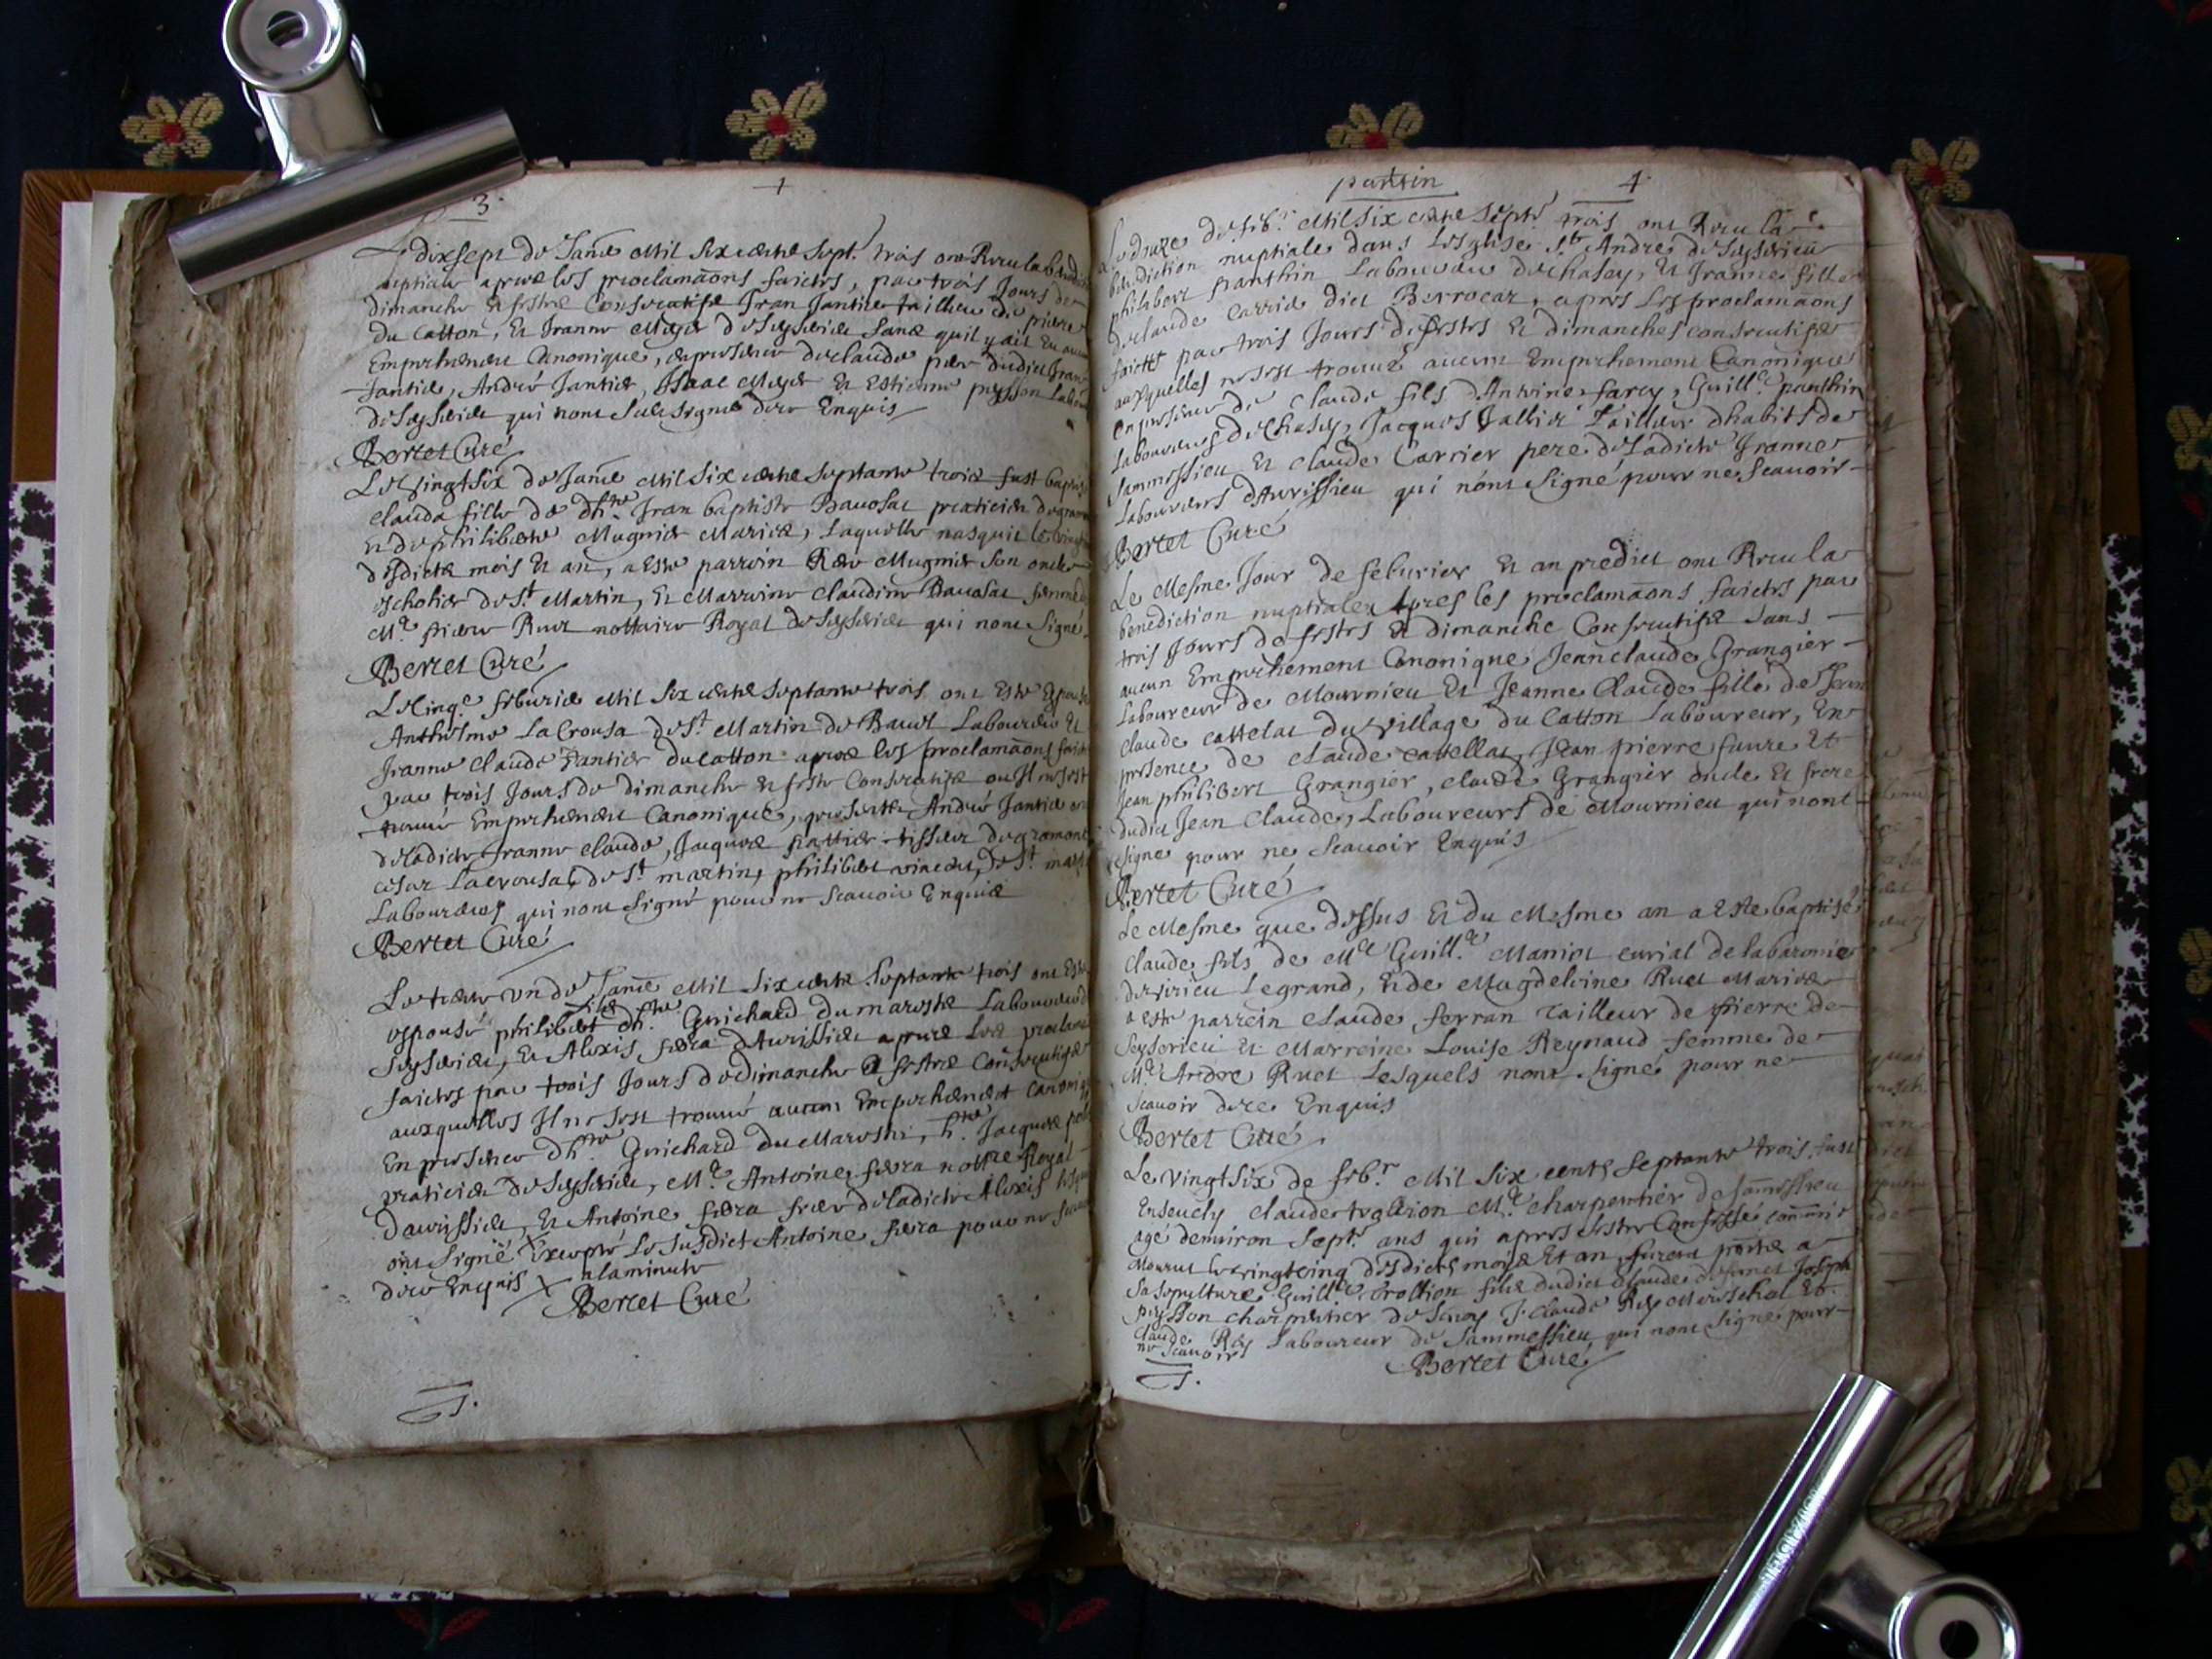 3
Le dixsept de Janr mil six cents sept. trois ont Receu la
nuptiale apres les proclamaons faictes, par trois Jours de
dimanche et festes Consecutifs Jean Jantier tailleur de pierre
du Catton, Et Jeanne Meyer de Seyserieu sans quil y ait Eu
Empechement Canonique, en presence de claude pere dudict Jean
Jantier, André Jantier, Isaac Meyer Et Estienne peysson
de Seyserieu qui nont sceu signé de ce Enquis
Bertet Curé
Le Vingtsix de Janr Mil Six cents Septante trois fust
clauda fille de Jean baptiste Bavosat praticien
Et de philiberte Mugnier Mariez, Laquelle nasquit le
desdicts mois Et an, a Esté parrain Mugnier son oncle
escholier de St Martin, Et Marraine claudine Bavosat
Me Ruet nottaire Royal de Seyserieu qui nont Signé
Bertet Curé
Le Cinqe feburier Mil Six cents Septante trois ont Esté
Anthelme La Crousa de St Martin de Bavel Laboureur Et
Jeanne Claude Jantier du Catton apres les proclamaons
par trois Jours de dimanche et feste Consecutifs ou Il ne sest
trouvé Empechement Canonique, presents André Jantier
de Ladicte Jeanne claude, Jacques tisseur
cesar Lacrousa, de St martin, philibert de St
Laboureurs qui nont Signé pour ne Scauoir Enquis
Bertet Curé
Le trente un de Janr Mil Six cents Septante trois ont
espousé philibert filz Guichard du maresté Laboureur
Seyserieu, Et Alexis d'Aurissieu apres les
faictes par trois Jours de dimanche et festes Consecutifs
auxquelles Il ne sest trouvé aucun Empechement
En presence Guichard du Maresté, Jacques
praticien de Seyserieu, Me Antoine nottre Royal
Daurissieu, Et Antoine frere de Ladicte Alexis
ont Signé Excepté Le Susdict Antoine pour ne
de ce Enquis alaminute
Bertet Curé
panthin 4
Le douze de feb.r Mil Six cents Sept. trois ont Receu La
benediction nuptiale dans Lesglise St André de Seyserieu
philibert panthin Laboureur de chasey, Et Jeanne fille
de claude Carrier dict Berrocaz, apres Les proclamaons
faictes par trois Jours de festes Et dimanches consecutifs
auxquelles ne sest trouué aucun Empechement Canonique
en presence de Claude fils d'Antoine farcy, Guille panthin
Laboureurs de Chasey, Jacques Jallier Tailleur dhabits de
Sammessieu Et claude Carrier pere de Ladicte Jeanne
Laboureurs d'Aurissieu qui nont Signé pour ne Scauoir
Bertet Curé
Le Mesme Jour de feburier Et an predict ont Receu la
benediction nuptiale apres les proclamaons faictes par
trois Jours de festes Et dimanche Consecutifs sans
aucun Empechement Canonique Jean claude Grangier
Laboureur de Mournieu Et Jeanne Claude fille de
claude cattelat du village du Catton Laboureur, En
presence de claude cattellat, Jean pierre faure Et
Jean philibert Grangier, claude Grangier oncle Et frere
dudict Jean Claude, Laboureurs de Mournieu qui nont
signe pour ne Scauoir Enquis
Bertet Curé
Le Mesme que dessus Et du Mesme an a Esté baptisé
Claude fils de Me Guille Maniot curial de la baronnie
de virieu Legrand, Et de Magdeleine Ruet Mariez
a esté parrein Claude ferran Tailleur de pierre de
Seyserieu Et Marreine Louise Reynaud femme de
Me André Ruet Lesquels nont Signé pour ne
scauoir de ce Enquis
Bertet Curé
Le vingtsix de feb.r Mil Six cents Septante trois fust
Enseuely claude Me charpentier de Sammessieu
agé denuiron Sept. ans qui apres sestre Confessé
Mourut le vingtcinq desdicts mois Et an, furent a
sa sepulture Guille filz dudict Claude Joseph
peysson charpentier de claude Rey Mareschal Et
claude Rey Laboureur de Sammessieu qui nont Signé pour
ne Scauoir
Bertet Curé